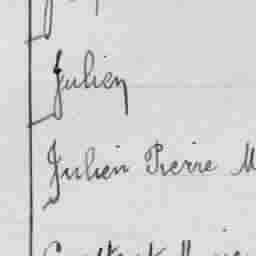 Julien
Julien Pierre M